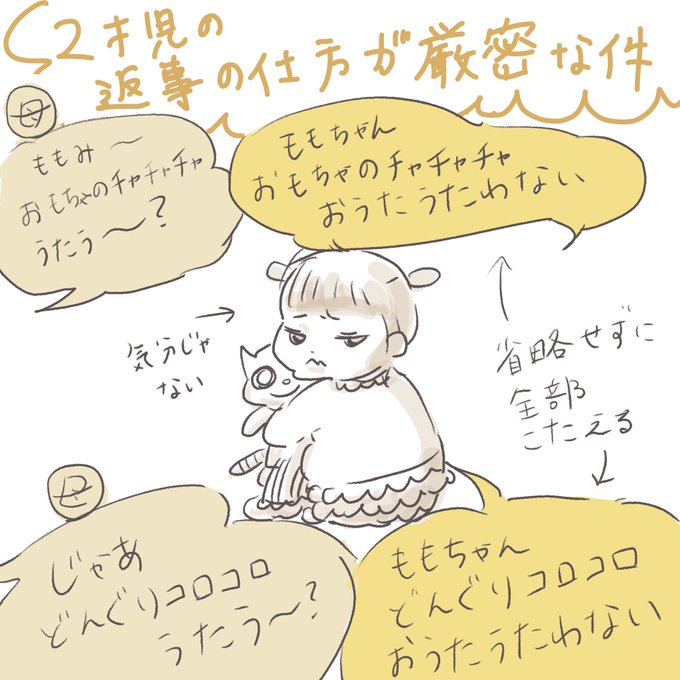 2才児の
返事の仕方が厳密な件
母
ももみ〜
おもちゃのチャチャチャ
うたう〜?
ももちゃん
おもちゃのチャチャチャ
おうたうたわない
気分じゃ
ない
省略せずに
全部
こたえる
母
じゃあ
どんぐりコロコロ
うたう〜?
ももちゃん
どんぐりコロコロ
おうたうたわない